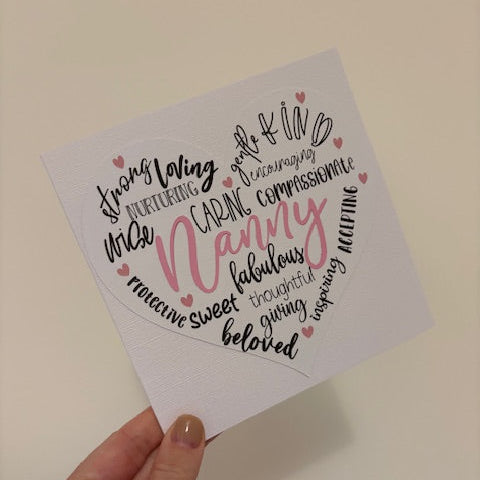 strong
loving
gentle
KIND
NURTURING
encouraging
wise
CARING
COMPASSIONATE
Nanny
ACCEPTING
PROTECTIVE
fabulous
sweet
thoughtful
inspiring
giving
beloved